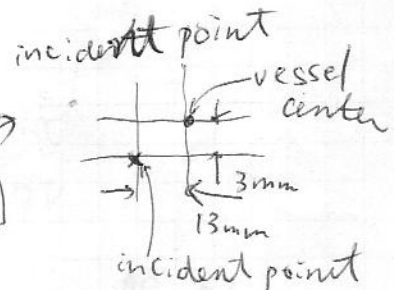 incident point
vessel
center
3mm
13mm
incident point